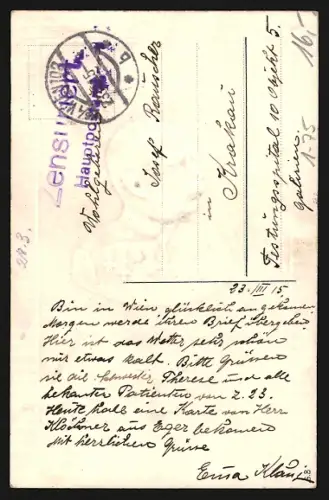 Zensuriert
Hauptpo
Wohlgeboren
Josef Rauscher
in
Krakau
Festungsspital 10 Objekt 5.
Galizien.
16,-
1-75
28.3.
23. III 15
Bin in Wien glücklich angekommen
Morgen werde ihren Brief übergeben
Hier ist das Wetter sehr schön
mir etwas kalt. Bitte Grüssen
sie die Schwester Therese und alle
bekanten Patienten von Z. 23.
Heute habe eine Karte von Herr
aus Eger bekomen
Mit herzlichen Grüsse
Erna